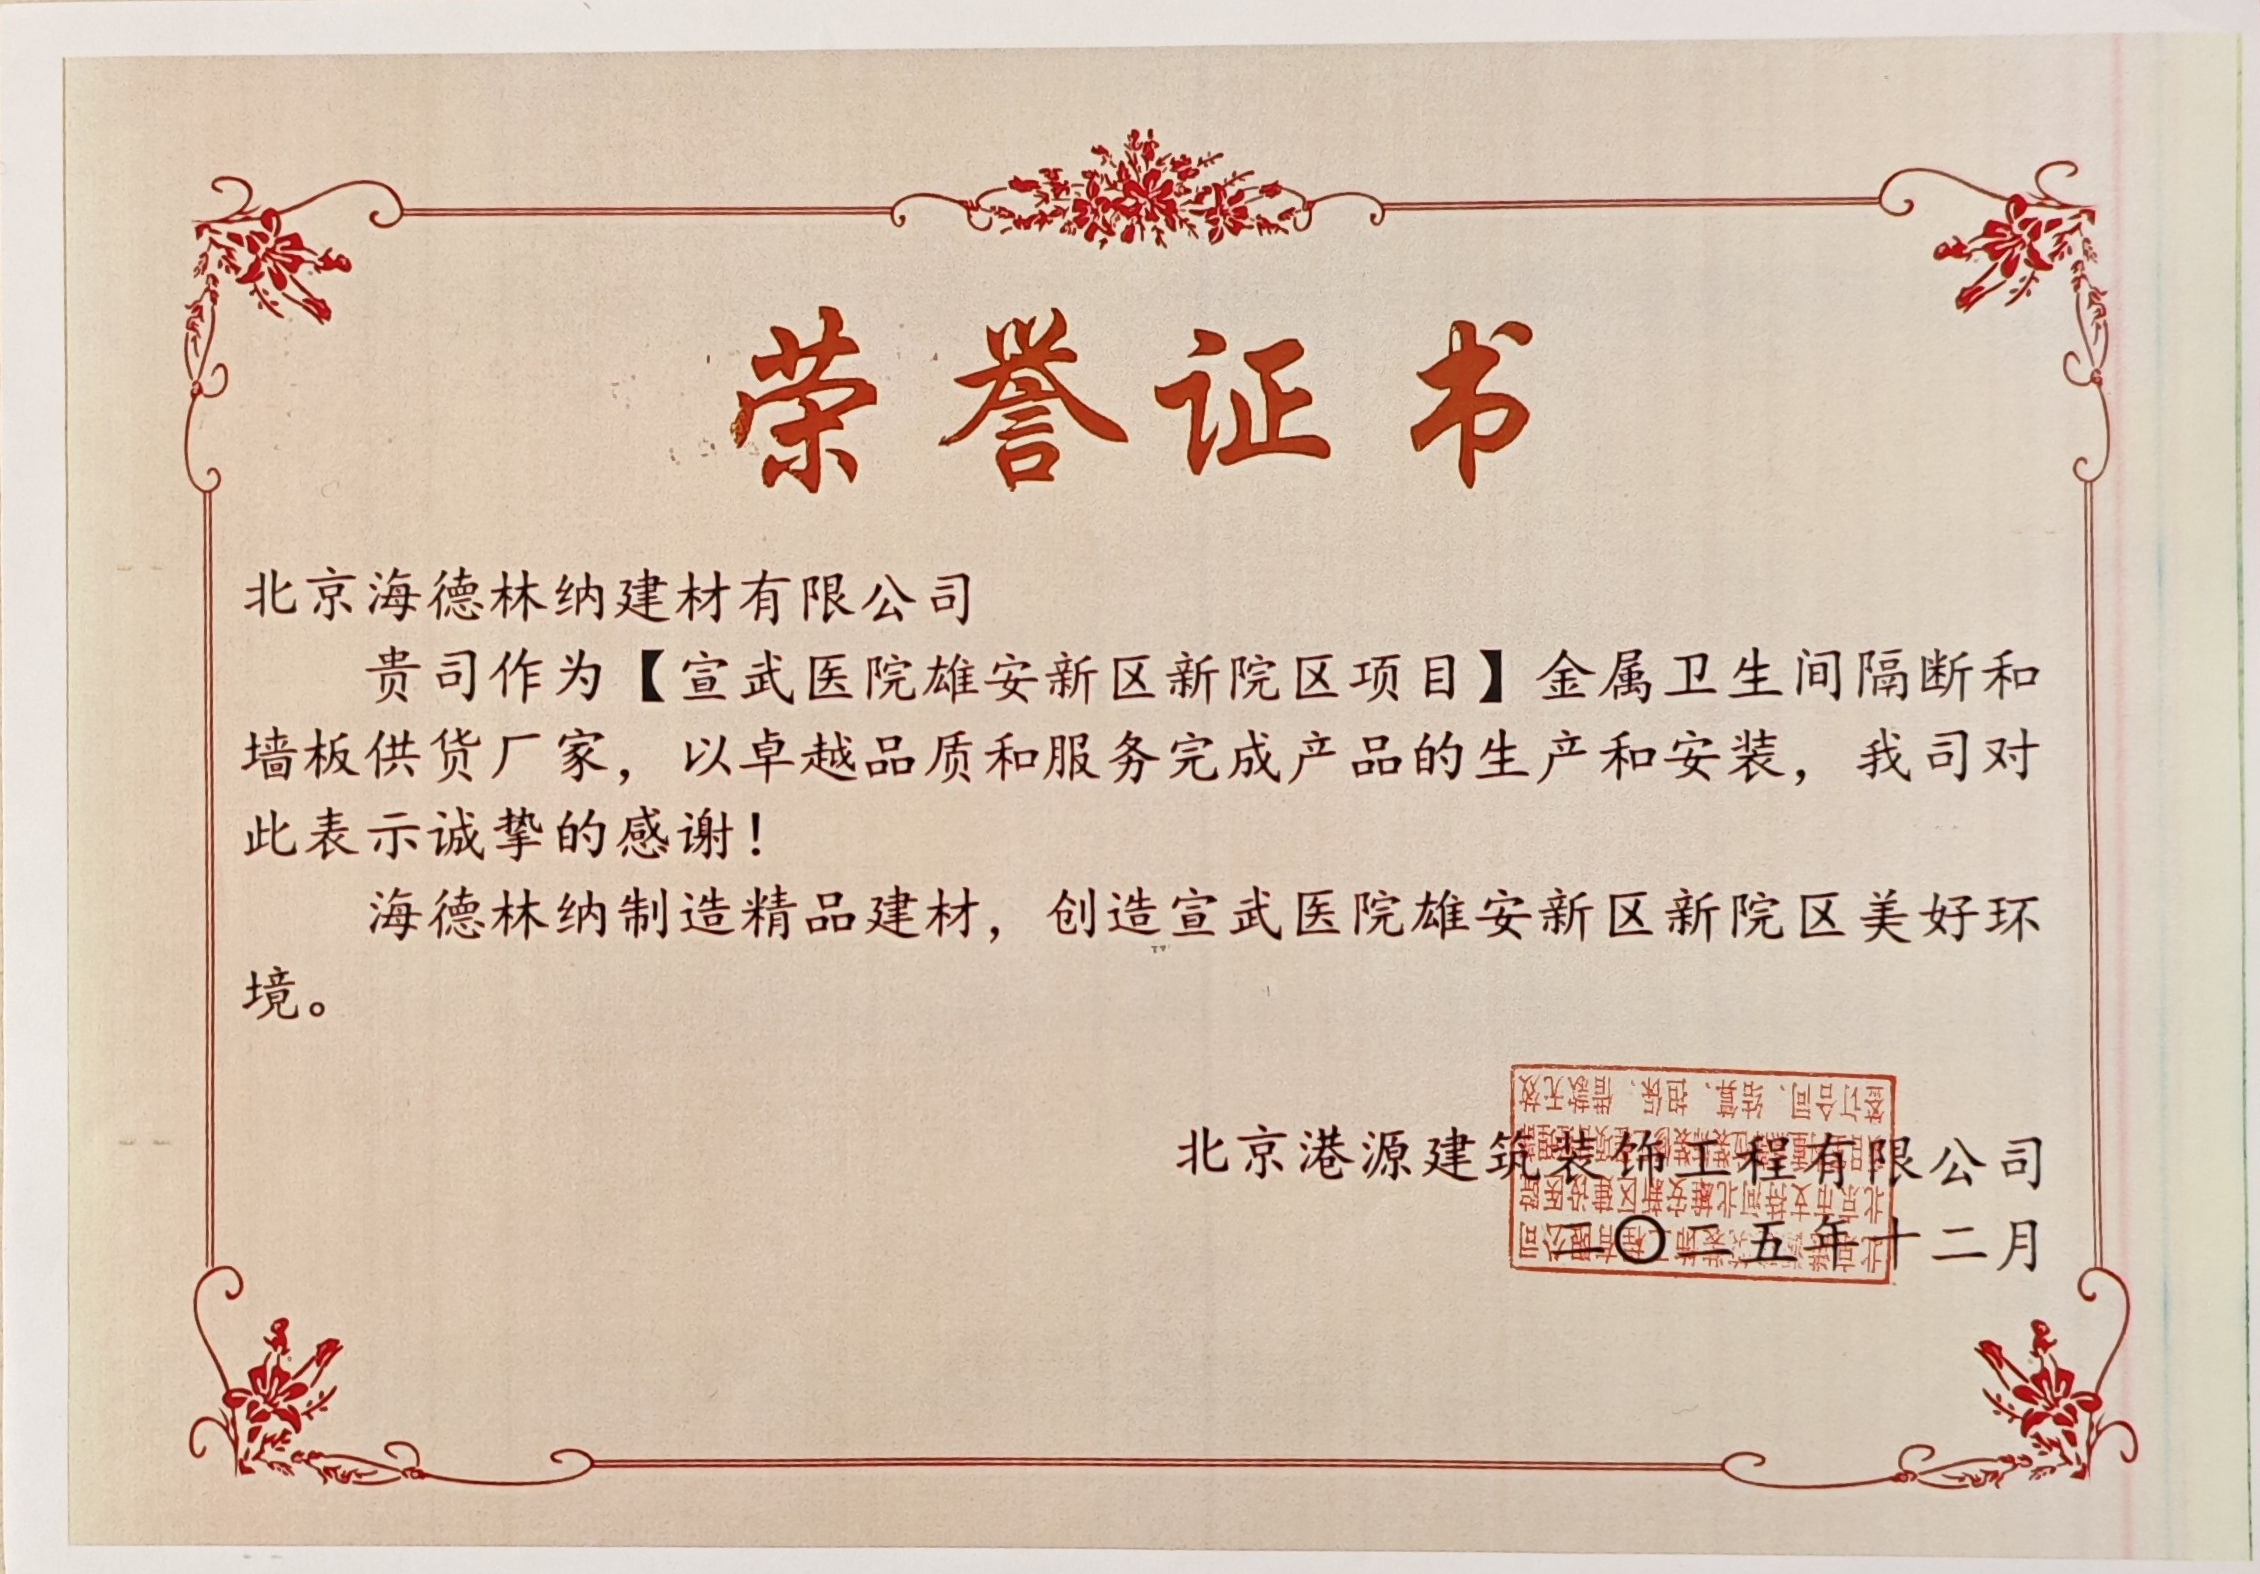 荣誉证书
北京海德林纳建材有限公司
贵司作为【宣武医院雄安新区新院区项目】金属卫生间隔断和
墙板供货厂家，以卓越品质和服务完成产品的生产和安装，我司对
此表示诚挚的感谢！
海德林纳制造精品建材，创造宣武医院雄安新区新院区美好环
境。
北京港源建筑装饰工程有限公司
二〇二五年十二月
签订合同、结算、担保、借款无效